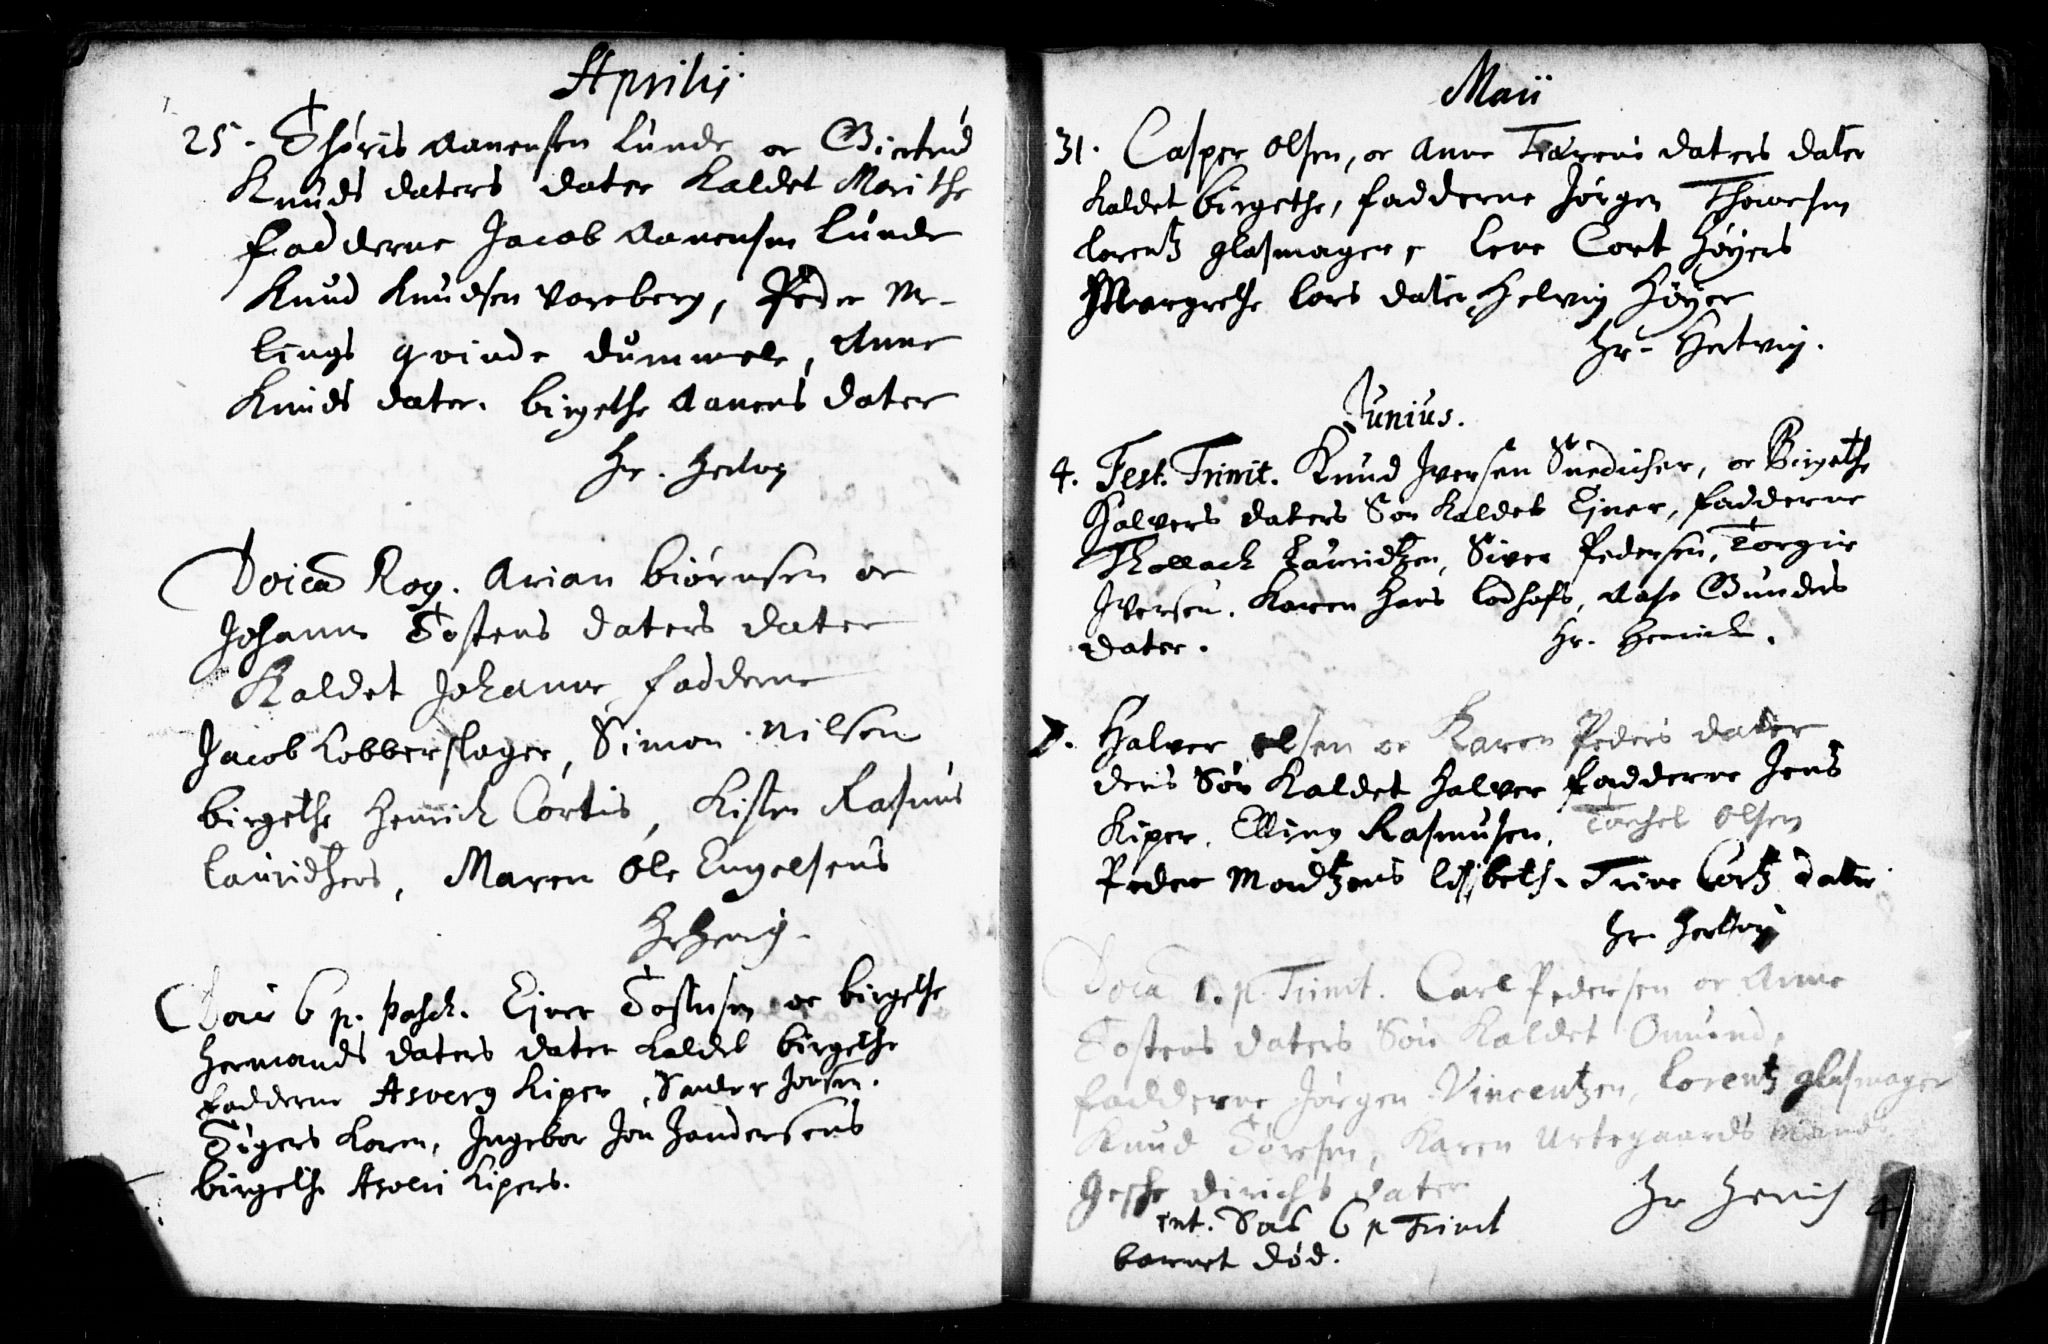 Aprilij.
25. Thøris Aanensen Lunde oc Giertrud
Knuds daters dater kaldet Marithe
fadderne Jacob Aanensen Lunde
Knud Knudsen Voreberg, Peder Me-
lings qvinde Dummele, Anne
Knuds dater. birgethe Aanens dater
Hr. Hertvig
Doica Rog. Arian biørnsen oc
Johanne Tostens daters dater
Kaldet Johanne fadderne
Jacob Kobberslager, Simon Nilsen
birgethe Henrich Cortis, Kisten Rasmus
Lauridtzers, Maren Ole Engelsens
Hr Henrich
Doīc 6 p. Pasch. Ejner Tostensen oc birgethe
Hermands daters dater kaldet birgethe
fadderne Asverg Kiper, Sander Jonsen.
Tigers Karen, Ingebor Jon Sandersens
birgethe Asveri Kipers.
Maii
31. Casper Olsen, oc Anne daters dater
kaldet birgethe, fadderne Jørgen Thomesen
Lorentz glasmager, Lene Cort Høyers
Margrethe Lars dater, Helvig Høyer
Hr. Hertvig.
Junius.
4. Fest. Trinit. Knud Iversen Snedicher, oc Birgethe
Halvers daters Søn kaldet Ejner, fadderne
Thollach Lauridtzen, Siver Pedersen, Torgir
Iversen. Karen Hans Lodhofs, Aase Gunders
dater. Hr. Henrich.
7. Halver Olsen oc Karen Peders dater
deris Søn Kaldet Halver fadderne Jens
Kiper. Elling Rasmusen, Torchel Olsen
Peder Madtzens Lisbeth. Trine Cortz dater
Hr. Hertvig
Doīca 1. p. Trinit. Carl Pedersen oc Anne
Tostens daters Søn Kaldet Omund,
fadderne Jørgen Vincentzen, Lorentz glasmager
Knud Tøresen, Karen Urtegaards mands
Gesche Dirichs dater Hr Henrich
int. Sal 6 p Trinit
barnet død.
4